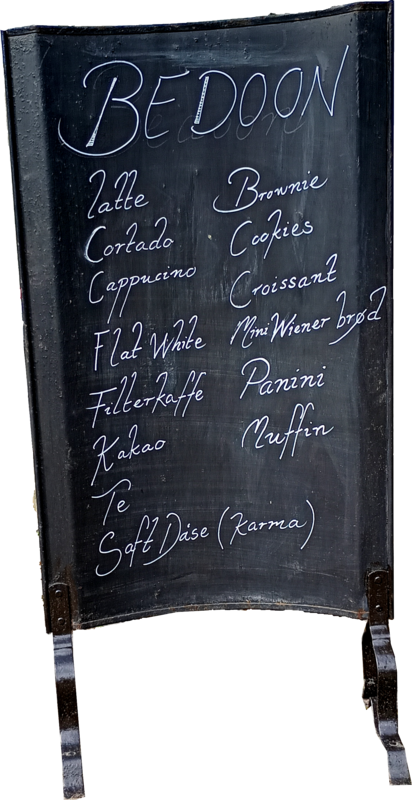 BEDOON
Latte
Cortado
Cappucino
Flat White
Filterkaffe
Kakao
Te
Saft Dåse (Karma)
Brownie
Cookies
Croissant
Mini Wiener brød
Panini
Muffin